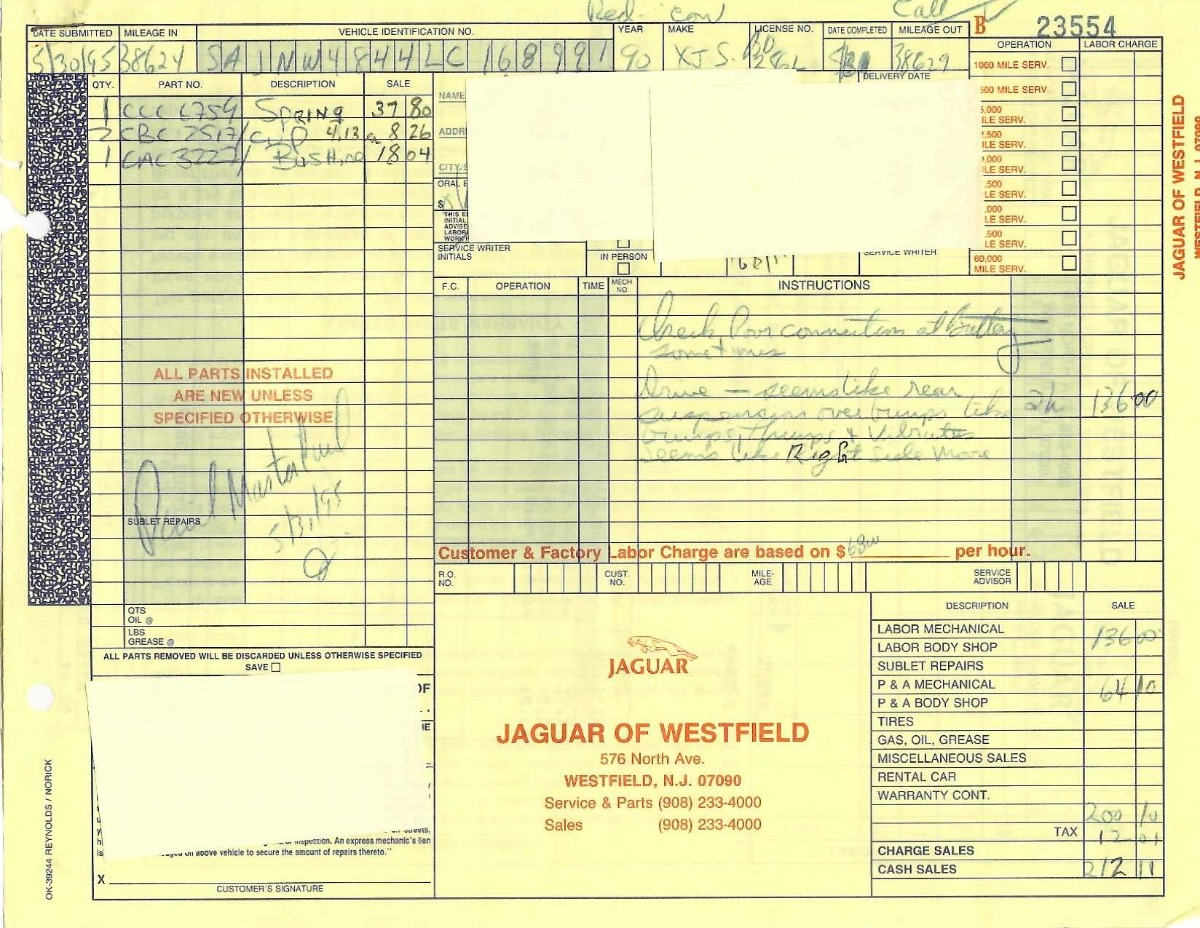 Red- conv Call
B 23554
DATE SUBMITTED MILEAGE IN VEHICLE IDENTIFICATION NO. YEAR MAKE LICENSE NO. DATE COMPLETED MILEAGE OUT
5/30/95 38624 SAJNW4844LC168991 90 XJS 38629
OPERATION LABOR CHARGE
QTY. PART NO. DESCRIPTION SALE
1 CCC 6759 SPRING 37 80
2 CBC 2517/ clip 4.13 ea 8 26
1 CAC 3227/ BUSHING 18 04
NAME
ADDR
CITY/S
ORAL E
$
"THIS E
INITIAL
ADVISE
LABOR
WORK
DELIVERY DATE
SERVICE WRITER
INITIALS
IN PERSON
SERVICE WRITER
1000 MILE SERV.
500 MILE SERV.
5,000
ILE SERV.
.500
LE SERV.
,000
LE SERV.
.500
LE SERV.
.000
LE SERV.
.500
LE SERV.
60,000
MILE SERV.
JAGUAR OF WESTFIELD
WESTFIELD, N.J. 07090
F.C. OPERATION TIME MECH. NO. INSTRUCTIONS
Check Poor connection at Battery
sometimes
Drive — seems like rear
suspension over bumps like 2h 136 00
bumps, thumps & Vibrates
seems like Right Side More
ALL PARTS INSTALLED
ARE NEW UNLESS
SPECIFIED OTHERWISE
SUBLET REPAIRS
Customer & Factory Labor Charge are based on $ 68 00 per hour.
R.O. NO. CUST. NO. MILE- AGE SERVICE ADVISOR
QTS
OIL @
LBS
GREASE @
ALL PARTS REMOVED WILL BE DISCARDED UNLESS OTHERWISE SPECIFIED
SAVE
JAGUAR
JAGUAR OF WESTFIELD
576 North Ave.
WESTFIELD, N.J. 07090
Service & Parts (908) 233-4000
Sales (908) 233-4000
DESCRIPTION SALE
LABOR MECHANICAL 136 00
LABOR BODY SHOP
SUBLET REPAIRS
P & A MECHANICAL 64 10
P & A BODY SHOP
TIRES
GAS, OIL, GREASE
MISCELLANEOUS SALES
RENTAL CAR
WARRANTY CONT.
200 10
TAX 12 01
CHARGE SALES
CASH SALES 212 11
OF
streets,
inspection. An express mechanic's lien
on above vehicle to secure the amount of repairs thereto."
X
CUSTOMER'S SIGNATURE
OK-39244 REYNOLDS / NORICK